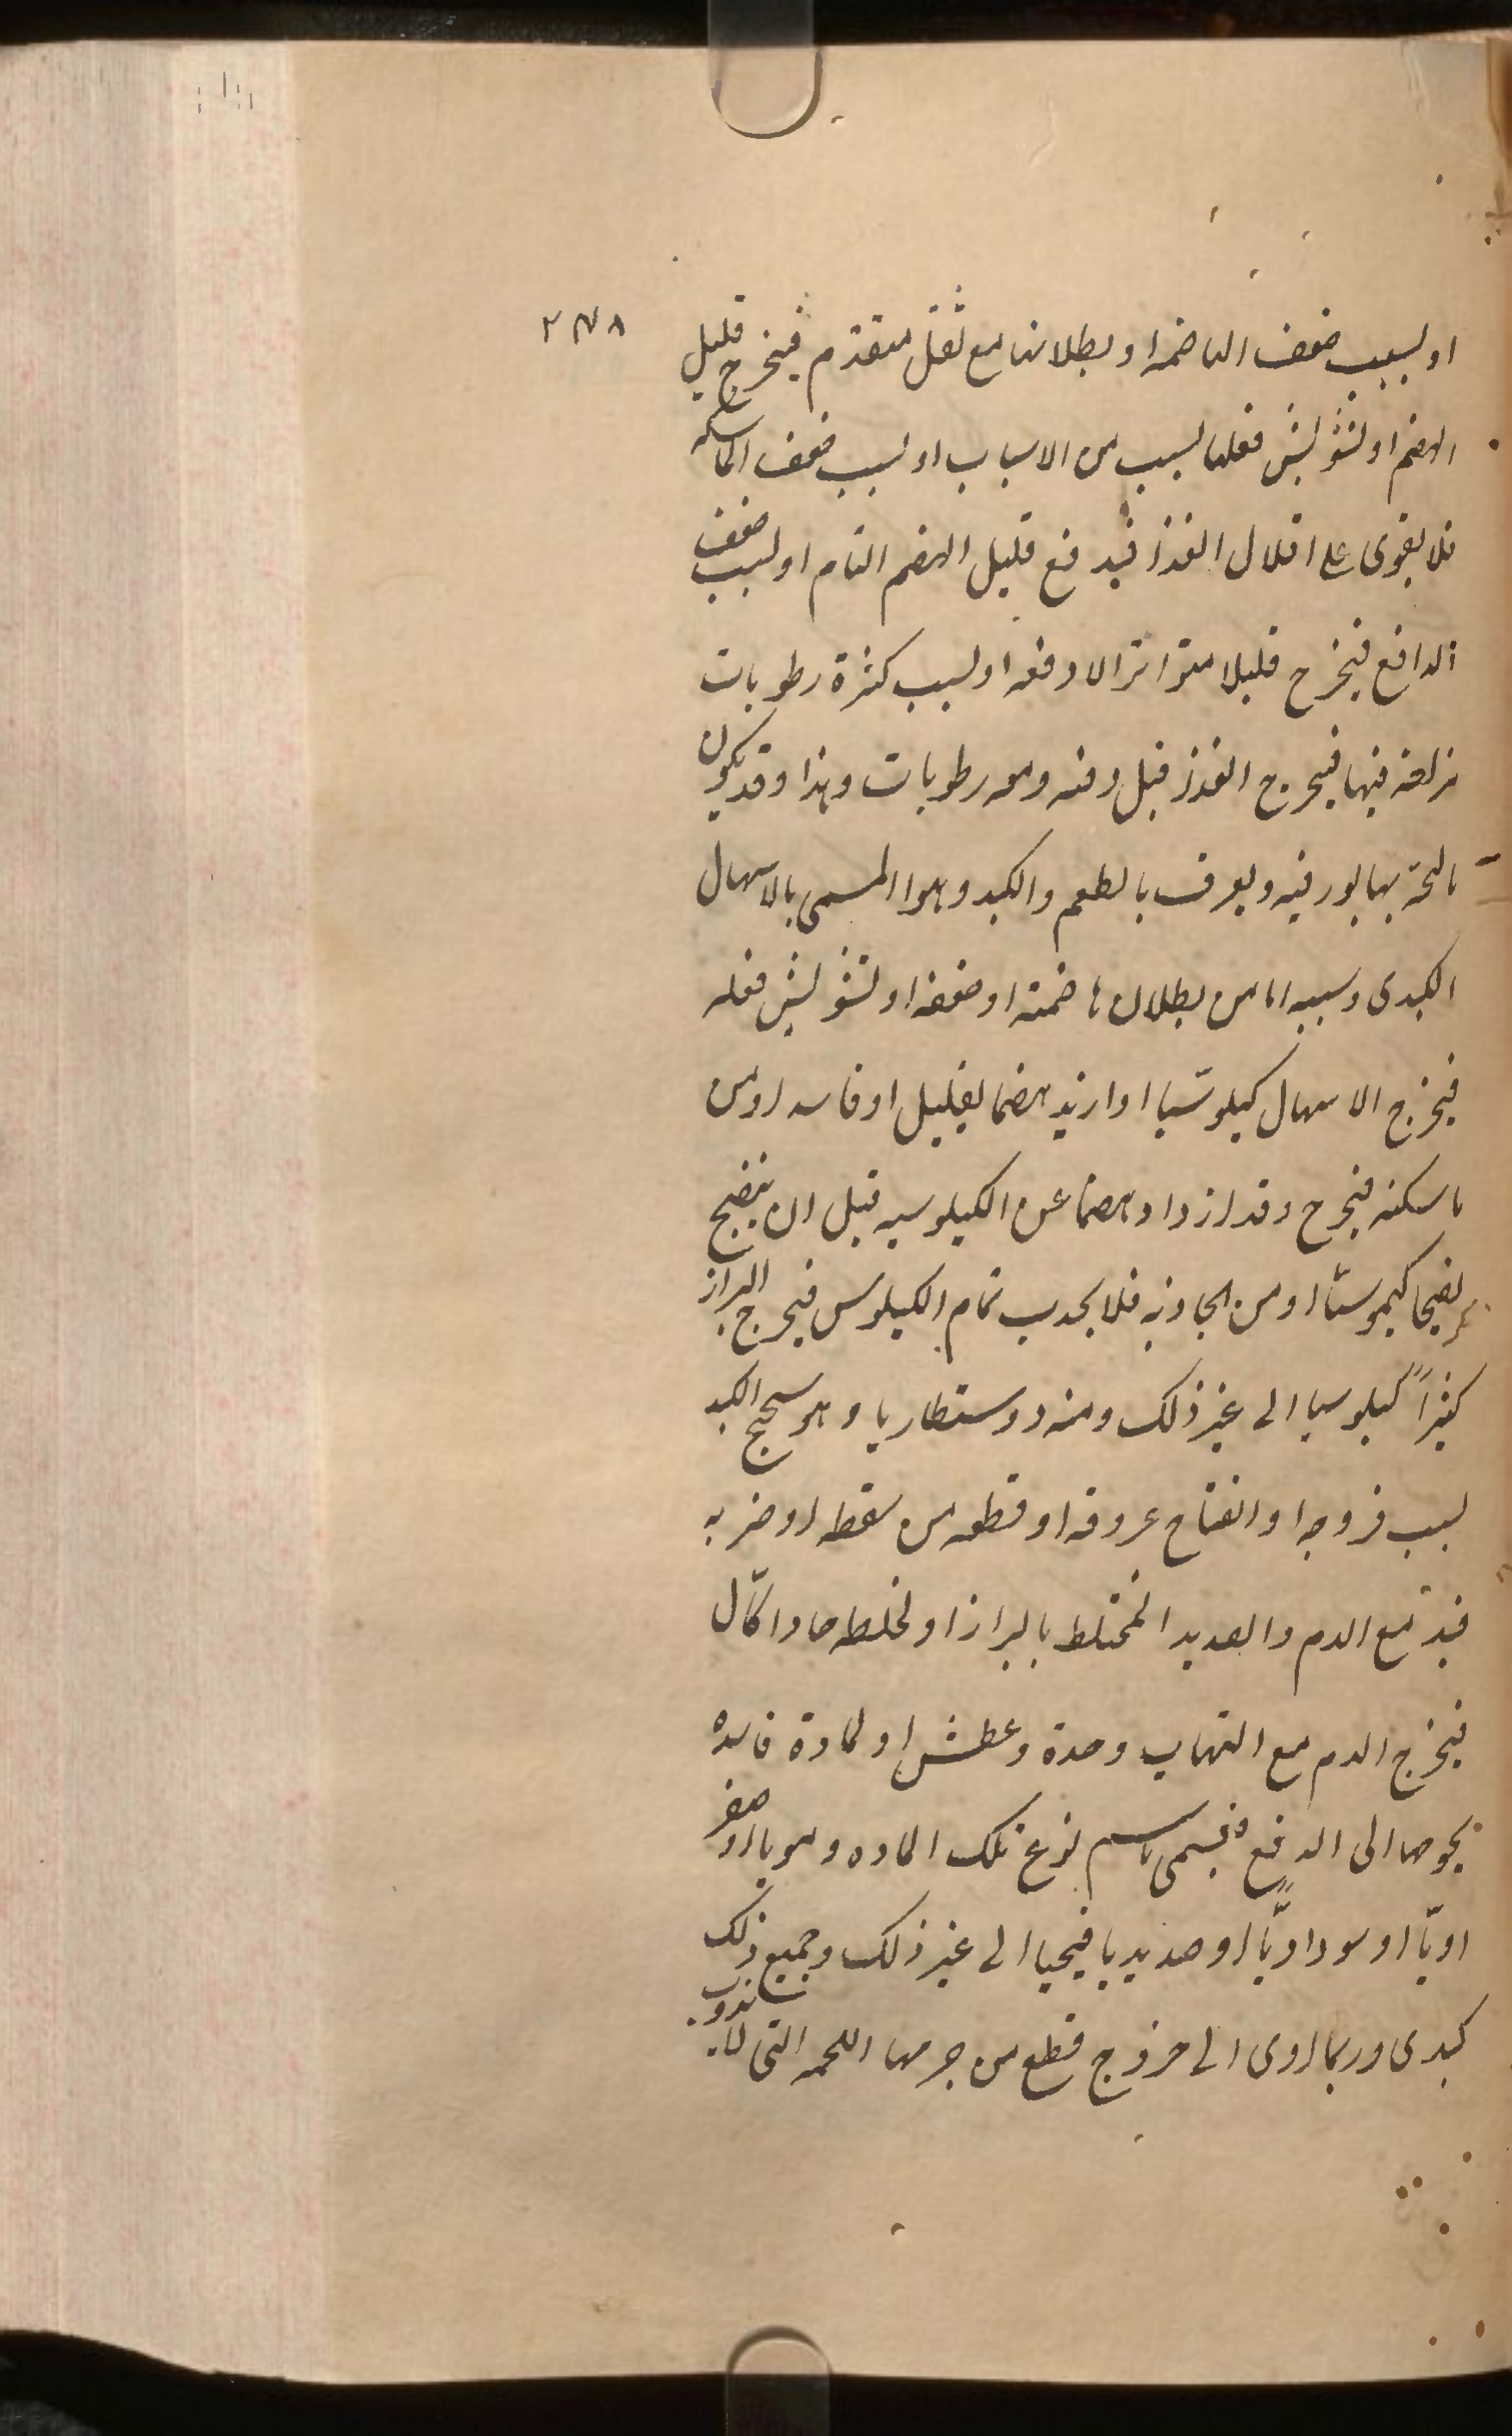 ٢٣٨
او لسبب ضعف الهاضمه او بطلانها مع ثقل متقدم فيخرج قليل
الهضم او لتشويش فعلها لسبب من الاسباب او لسبب ضعف الماسكه
فلا يقوى على اقلال الغذا فيدفع قليل الهضم التام او لسبب ضعف
الدافع فيخرج قليلا متواترا لا دفعه او لسبب كثرة رطوبات
مزلقه فيها فيخرج الغذا قبل وقته ومعه رطوبات وهذا وقد يكون
مالحة بها بورقيه ويعرف بالطعم والكبد وهو المسمى بالاسهال
الكبدى وسببه اما من بطلان هاضمته او ضعفه او تشويش فعله
فيخرج الاسهال كيلوسيا او ازيد هضما بقليل او فاسد او من
ماسكته فيخرج وقد ازداد هضما عن الكيلوسيه قبل ان ينضج
نضجا كيموسيا او من الجاذبه فلا يجذب تمام الكيلوس فيخرج البراز
كثيراً كيلوسيا الى غير ذلك ومنه دوسنطاريا وهو سحج الكبد
لسبب قروحه او انفتاح عروقه او قطعه من سقطه او ضربه
فيدفع الدم والصديد المختلط بالبراز او لخلطه حاد اكّال
فيخرج الدم مع التهاب وحدة وعطش او لمادة فاسده
يحوجها الى الدفع فيسمى باسم نوع تلك الماده دمويا او صفر
اويّا او سوداويّاً او صديديا قيحيا الى غير ذلك وجميع ذلك
كبدى وربما ادى الى خروج قطع من جرمها اللحمه التى لا يذوب